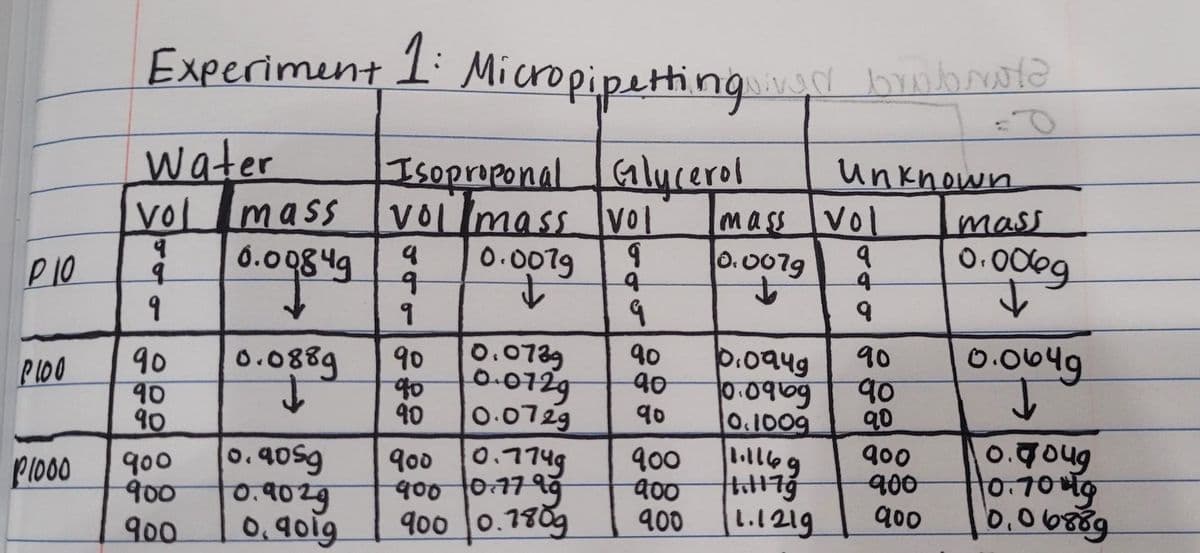 Experiment 1: Micropipetting
Water Isoproponal Glycerol Unknown
vol mass vol mass vol mass vol mass
P10 9 0.0984g 9 0.007g 9 0.007g 9 0.006g
9 ↓ 9 ↓ 9 ↓ 9 ↓
9 9 9 9
P100 90 0.088g 90 0.073g 90 0.094g 90 0.064g
90 ↓ 90 0.072g 90 0.096g 90 ↓
90 90 0.072g 90 0.100g 90
P1000 900 0.905g 900 0.774g 900 1.116g 900 0.704g
900 0.902g 900 0.779g 900 1.117g 900 0.704g
900 0.901g 900 0.780g 900 1.121g 900 0.0688g